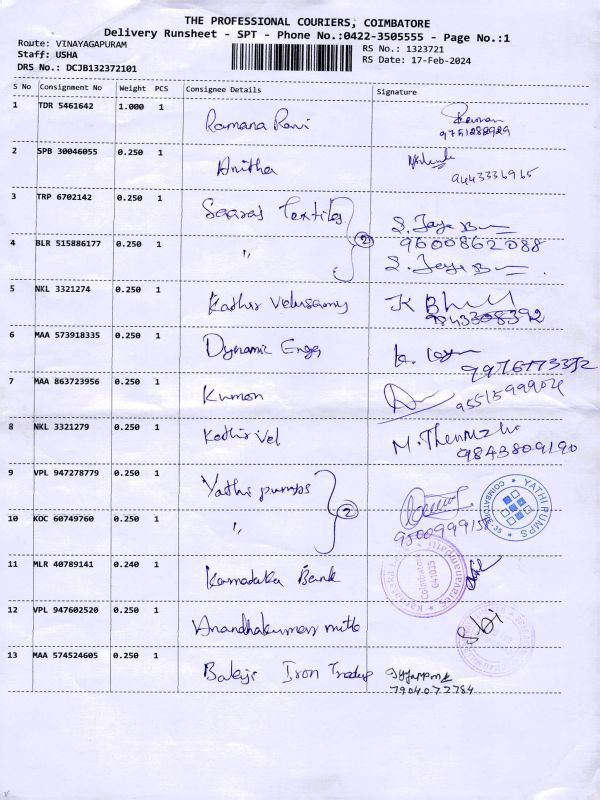 THE PROFESSIONAL COURIERS, COIMBATORE
Delivery Runsheet - SPT - Phone No.:0422-3505555 - Page No.:1
Route: VINAYAGAPURAM
Staff: USHA
DRS No.: DCJB132372101
RS No.: 1323721
RS Date: 17-Feb-2024
S No Consignment No Weight PCS Consignee Details Signature
1 TDR 5461642 1.000 1 Ramana Ravi
9751288929
2 SPB 30046055 0.250 1 Anitha
9443336965
3 TRP 6702142 0.250 1 Saaras Textiles S. Jaya
2 9600862088
4 BLR 515886177 0.250 1 " S. Jaya
5 NKL 3321274 0.250 1 Kathir Velusamy
9843308392
6 MAA 573918335 0.250 1 Dynamic Engg
9976773352
7 MAA 863723956 0.250 1 Kumon
8 NKL 3321279 0.250 1 Kathirvel M.
9843809190
9 VPL 947278779 0.250 1 Yathi pumps
2
10 KOC 60749760 0.250 1 "
YATHI PUMPS
COIMBATORE-35
11 MLR 40789141 0.240 1 Karnadaka Bank
Coimbatore
641035
12 VPL 947602520 0.250 1 Anandhakumar
Sbi
13 MAA 574524605 0.250 1 Balaji Iron Traders
7904072784